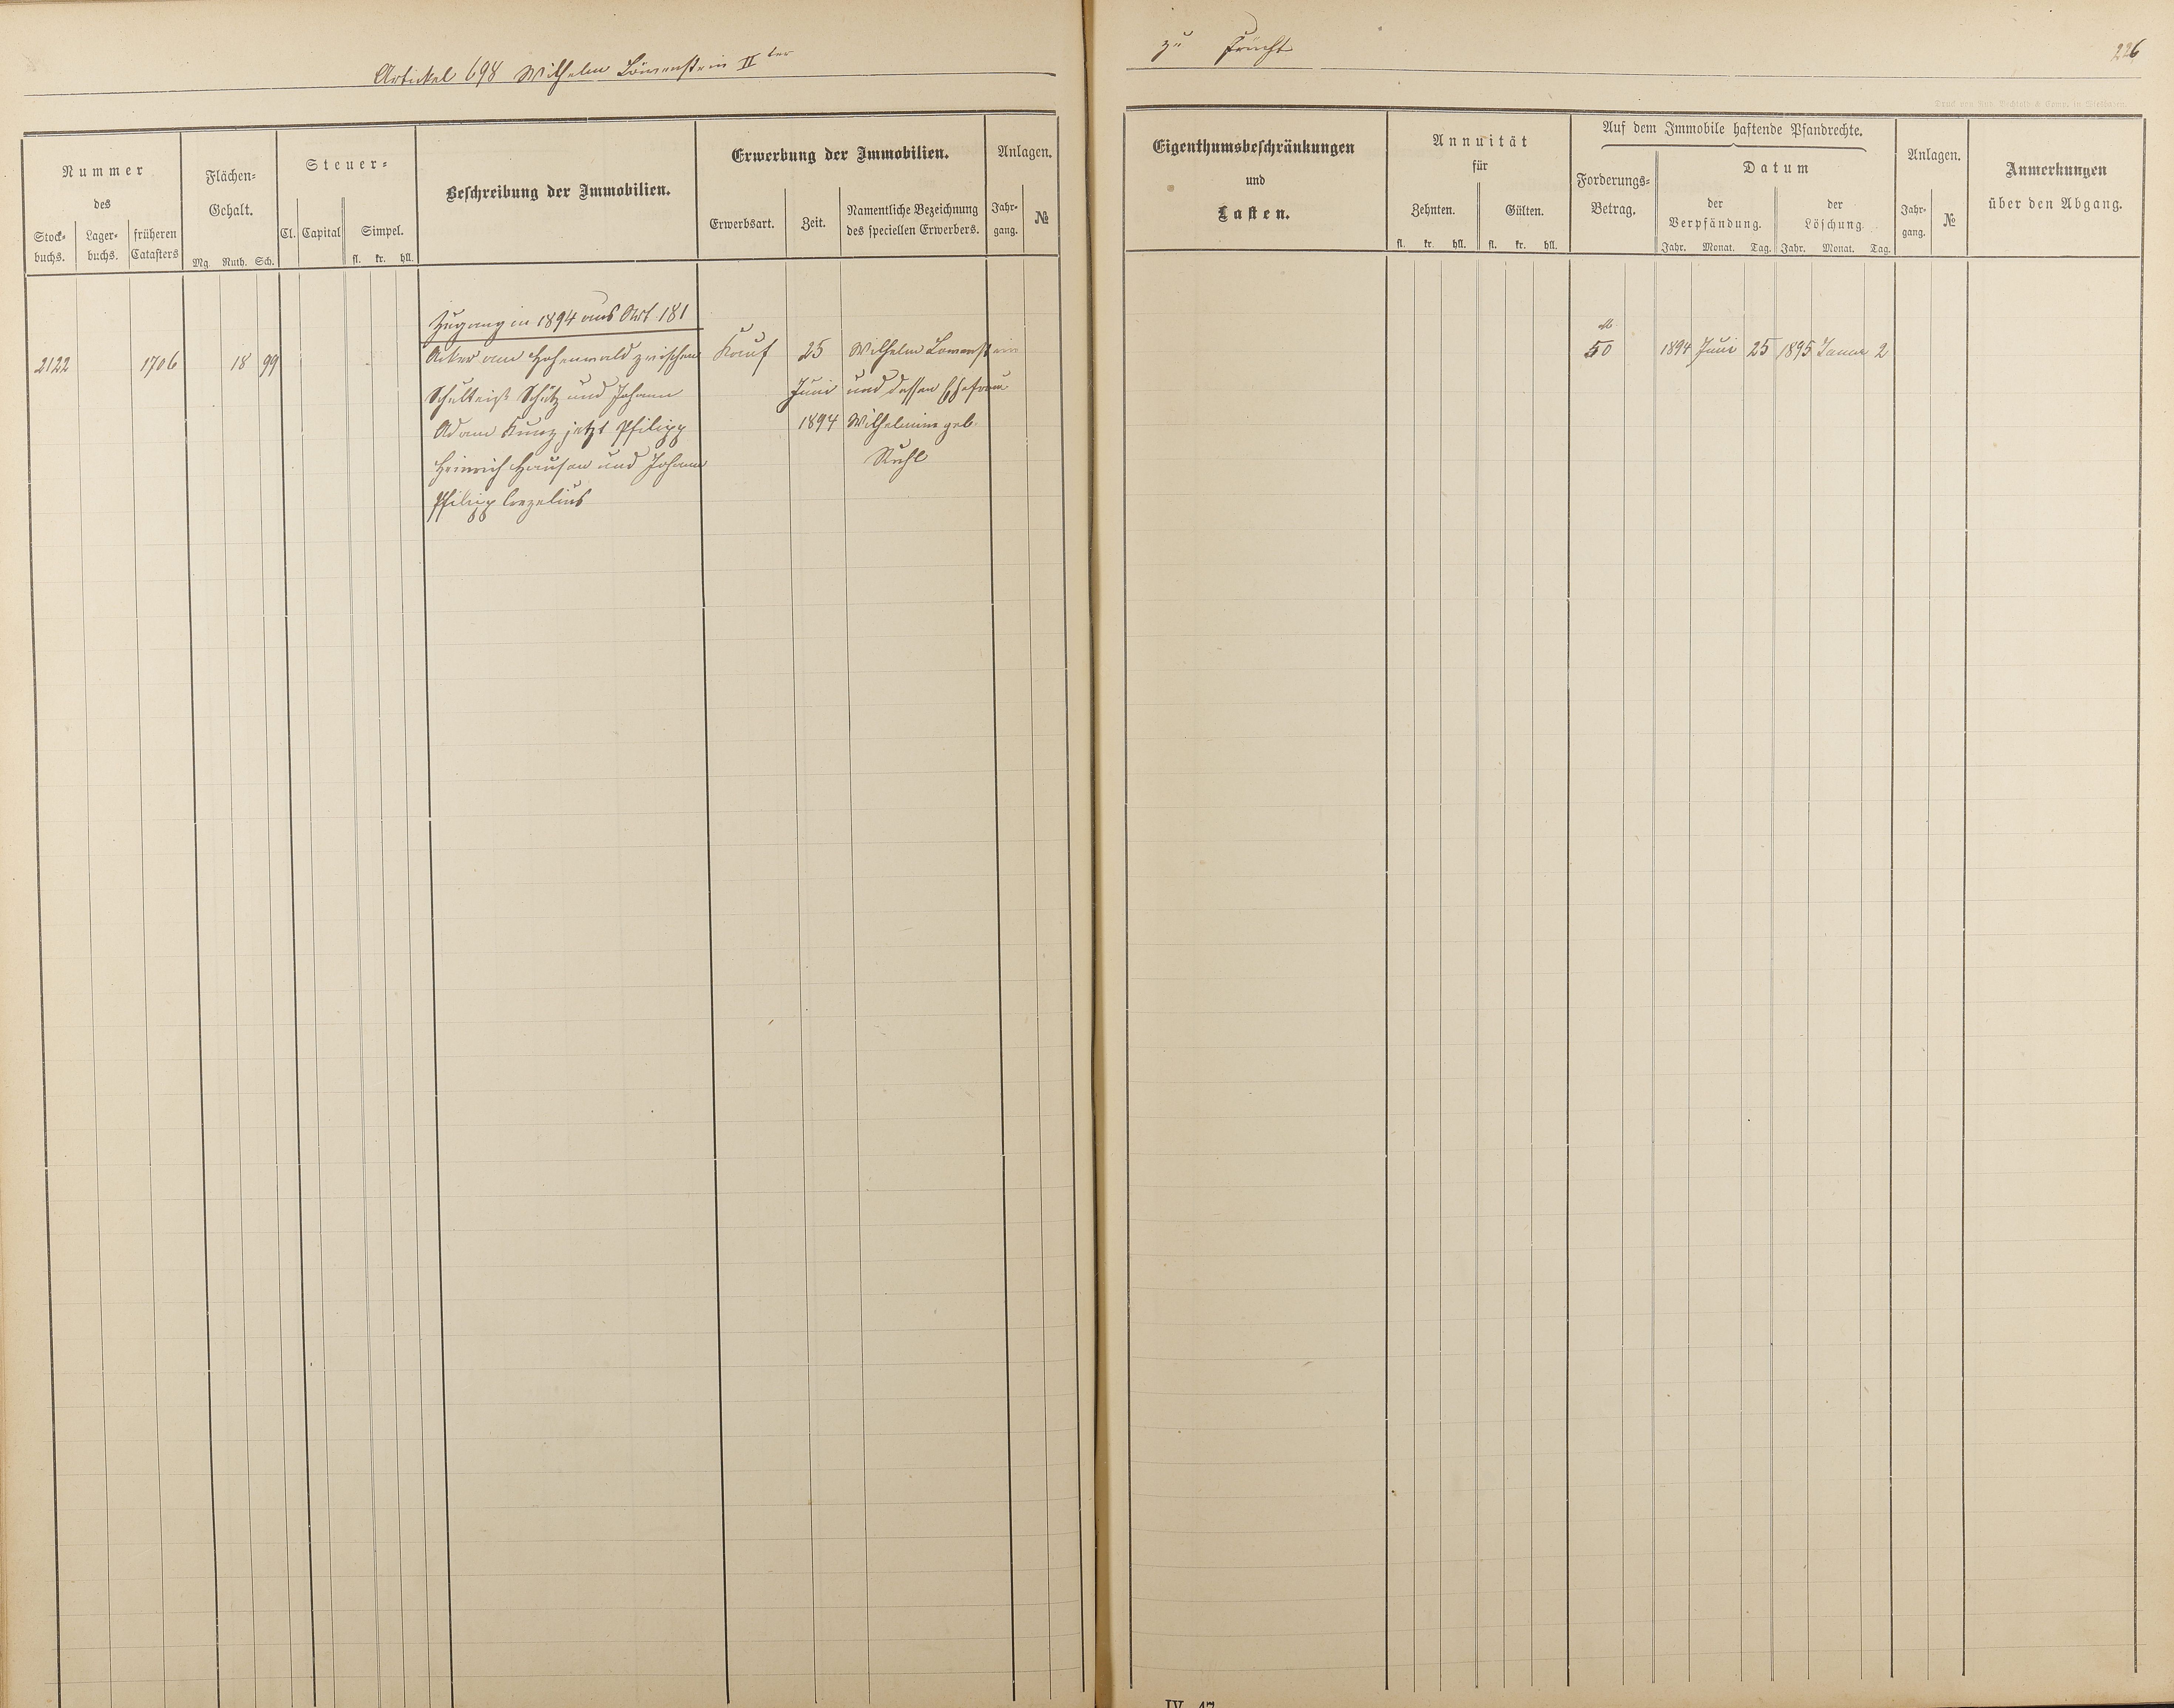 Artickel 698 Wilhelm Löwenstein II ter
zu Frücht
226
Druck von Rud. Bechtold & Comp. in Wiesbaden.
Nummer
des
Stock-
buchs.
Lager-
buchs.
früheren
Catasters
Flächen-
Gehalt.
Mg. Ruth. Sch.
Steuer-
Cl. Capital
Simpel.
fl. kr. hll.
Beschreibung der Immobilien.
Erwerbung der Immobilien.
Erwerbsart.
Zeit.
Namentliche Bezeichnung
des speciellen Erwerbers.
Anlagen.
Jahr-
gang.
№
Eigenthumsbeschränkungen
und
Lasten.
Annuität
für
Zehnten.
Gülten.
fl. kr. hll. fl. kr. hll.
Auf dem Immobile haftende Pfandrechte.
Forderungs-
Betrag.
Datum
der
Verpfändung.
der
Löschung.
Jahr. Monat. Tag. Jahr. Monat. Tag.
Anlagen.
Jahr-
gang.
№
Anmerkungen
über den Abgang.
Zugang in 1894 aus Art 181
2122 1706 18 99 Acker am Hohenwald zwischen Kauf 25 Wilhelm Löwenstein
Schultheiß Schütz und Johann Juni und dessen Ehefrau
Adam Kunz jetzt Philipp 1894 Wilhelmine geb.
Heinrich Hausen und Johann Ruhl
Philipp Corzelius
M
50 1894 Juni 25 1895 Janua 2
IV. 17